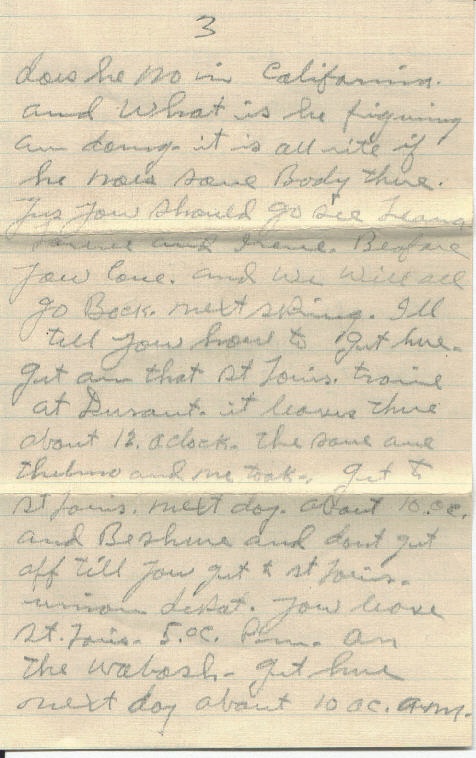 3
does he no in California.
and What is he figuring
an doing. it is all rite if
he nois some Body there.
yes you should go see
and Irene. Beafore
you come. and we will all
go Back. next spring. Ill
till you how to get here.
get an that St Louis. traine
at Durant. it leaves there
about 12. oclock. the same one
thelma and me took. get to
St Louis. next day. about 10. oc.
and Beshure and dont get
off till you get to St Louis.
union depat. you leave
St. Louis. 5. oc. P.m. an
the Wabash. get here
next day about 10 oc. a.m.